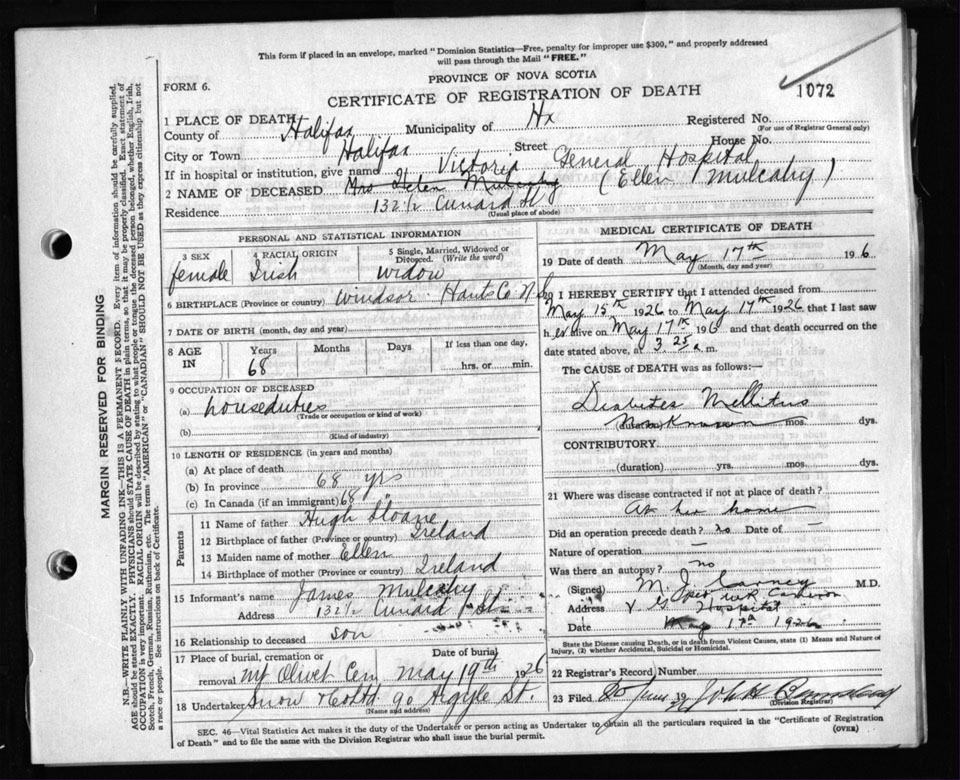 This form if placed in an envelope, marked "Dominion Statistics—Free, penalty for improper use $300," and properly addressed
will pass through the Mail "FREE."
PROVINCE OF NOVA SCOTIA
FORM 6.
CERTIFICATE OF REGISTRATION OF DEATH
1072
1 PLACE OF DEATH
County of Halifax Municipality of Hx Registered No.
(For use of Registrar General only)
City or Town Halifax Street House No.
If in hospital or institution, give name Victoria General Hospital
2 NAME OF DECEASED Mrs Helen Mulcahy (Ellen Mulcahy)
Residence 132½ Cunard St
(Usual place of abode)
PERSONAL AND STATISTICAL INFORMATION
3 SEX 4 RACIAL ORIGIN 5 Single, Married, Widowed or Divorced. (Write the word)
female Irish widow
6 BIRTHPLACE (Province or country) Windsor Hants Co N.S.
7 DATE OF BIRTH (month, day and year)
8 AGE IN Years Months Days If less than one day,
68 hrs. or min.
9 OCCUPATION OF DECEASED
(a) houseduties
(Trade or occupation or kind of work)
(b)
(Kind of industry)
10 LENGTH OF RESIDENCE (in years and months)
(a) At place of death
(b) In province 68 yrs
(c) In Canada (if an immigrant) 68 "
Parents
11 Name of father Hugh Sloane
12 Birthplace of father (Province or country) Ireland
13 Maiden name of mother Ellen
14 Birthplace of mother (Province or country) Ireland
15 Informant's name James Mulcahy
Address 132½ Cunard St
16 Relationship to deceased son
17 Place of burial, cremation or removal Date of burial
Mt Olivet Cem May 19th 1926
18 Undertaker Snow & Co Ltd 90 Argyle St.
(Name and address)
MEDICAL CERTIFICATE OF DEATH
19 Date of death May 17th 1926
(Month, day and year)
20 I HEREBY CERTIFY that I attended deceased from
May 15th 1926 to May 17th 1926 that I last saw
her alive on May 17th 1926 and that death occurred on the
date stated above, at 3.25 a. m.
The CAUSE of DEATH was as follows:—
Diabetes Mellitus
(duration) Unknown mos. dys.
CONTRIBUTORY.
(duration) yrs. mos. dys.
21 Where was disease contracted if not at place of death?
At her home
Did an operation precede death? no Date of —
Nature of operation —
Was there an autopsy? no
(Signed) M. J. Carney M.D.
per Cameron
Address V G Hospital
Date May 17th 1926
State the Disease causing Death, or in death from Violent Causes, state (1) Means and Nature of
Injury, (2) whether Accidental, Suicidal or Homicidal.
22 Registrar's Record Number
23 Filed 19
(Division Registrar)
SEC. 46—Vital Statistics Act makes it the duty of the Undertaker or person acting as Undertaker to obtain all the particulars required in the "Certificate of Registration
of Death" and to file the same with the Division Registrar who shall issue the burial permit.
(OVER)
MARGIN RESERVED FOR BINDING
N.B.—WRITE PLAINLY WITH UNFADING INK—THIS IS A PERMANENT RECORD. Every item of information should be carefully supplied.
AGE should be stated EXACTLY. PHYSICIANS should STATE CAUSE OF DEATH in plain terms, so that it may be properly classified. Exact statement of
OCCUPATION is very important. RACIAL ORIGIN will be described by stating to what people or tongue the deceased person belonged, whether English, Irish,
Scotch, French, German, Russian, Ruthenian, etc. The terms "AMERICAN" or "CANADIAN" SHOULD NOT BE USED as they express citizenship but not
a race or people. See instructions on back of Certificate.